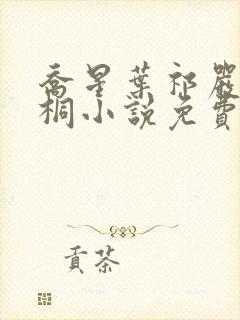 喬星葉祁嚴
桐小說免費
貢茶